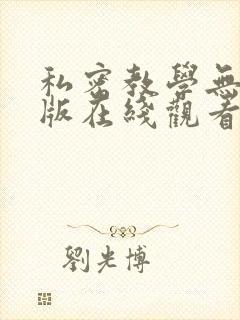 私密教學無
版在綫觀看
劉光博